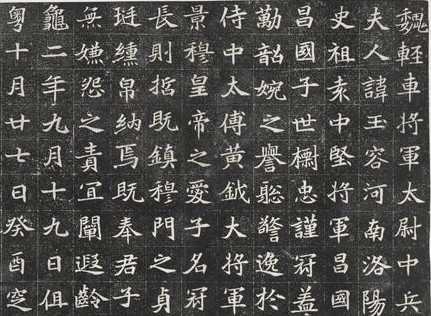 魏輕車將軍太尉中兵
夫人諱玉容河南洛陽
史祖袁中堅將軍昌國
昌國子世忠謹冠蓋
勤韶婉之譽聡警逸於
侍中太傅黃鉞大將軍
景穆皇帝之愛子名冠
長則悊既鎮穆門之貞
珽纁帛納焉既奉君子
無嫌怨之責宜闡遐齡
龜二年九月十九日徂
粵十月廿七日癸酉窆